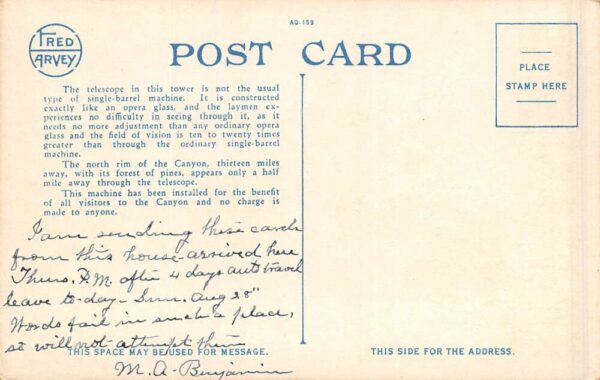 FRED
HARVEY
AO-159
POST CARD
PLACE
STAMP HERE
The telescope in this tower is not the usual
type of single-barrel machine. It is constructed
exactly like an opera glass, and the laymen ex-
periences no difficulty in seeing through it, as it
needs no more adjustment than any ordinary opera
glass and the field of vision is ten to twenty times
greater than through the ordinary single-barrel
machine.
The north rim of the Canyon, thirteen miles
away, with its forest of pines, appears only a half
mile away through the telescope.
This machine has been installed for the benefit
of all visitors to the Canyon and no charge is
made to anyone.
I am sending these cards
from this house - arrived here
Thurs. P.M. after 4 days auto travel
leave to-day - Sun. Aug 28"
Words fail in such a place,
so will not attempt them
THIS SPACE MAY BE USED FOR MESSAGE.
M. A. Benjamin
THIS SIDE FOR THE ADDRESS.